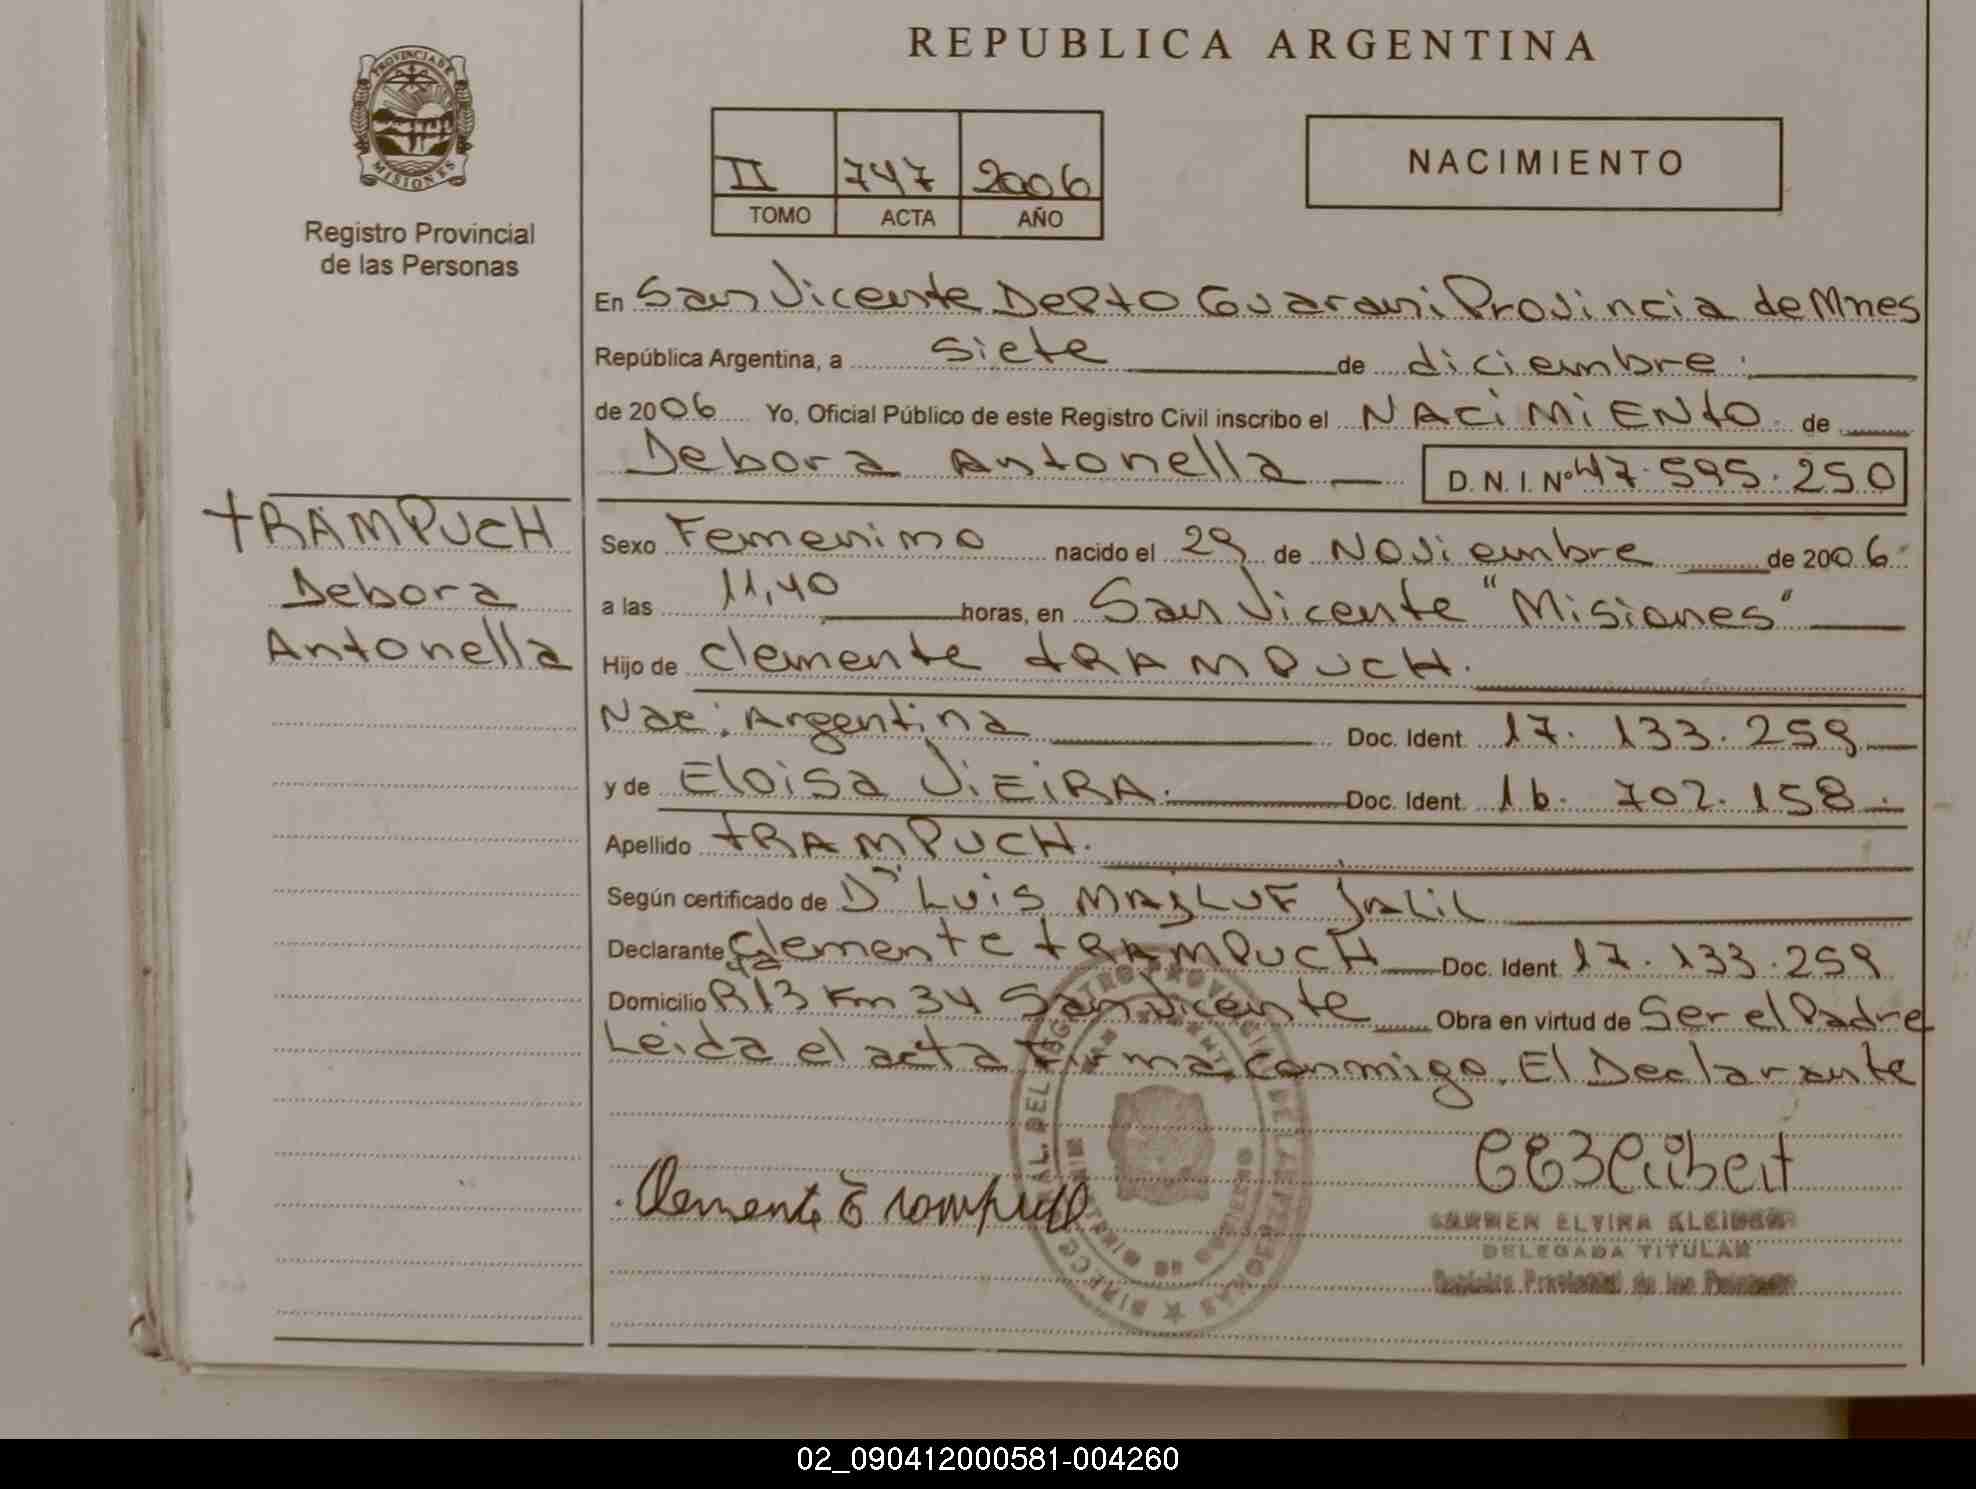 REPUBLICA ARGENTINA
PROVINCIA DE
MISIONES
Registro Provincial
de las Personas
II 747 2006
TOMO ACTA AÑO
NACIMIENTO
En San Vicente Depto Guarani Provincia de Mnes
República Argentina, a siete de diciembre
de 2006 Yo, Oficial Público de este Registro Civil inscribo el NACiMiENtO de
Debora Antonella D. N. I. Nº 47.595.250
tRAMPUCH
Debora
Antonella
Sexo Femenino nacido el 29 de Noviembre de 2006
a las 11,40 horas, en San Vicente "Misiones"
Hijo de Clemente tRAMPUCH.
Nac: Argentina Doc. Ident. 17.133.259
y de Eloisa ViEiRA. Doc. Ident. 16.702.158.
Apellido tRAMPUCH.
Según certificado de Dr Luis MAJLUF JALiL
Declarante Clemente tRAMPUCH Doc. Ident. 17.133.259
Domicilio R13 Km 34 San Vicente Obra en virtud de Ser el Padre
Leida el acta firma conmigo. El Declarante
Clemente Trampuch
CARMEN ELVIRA
DELEGADA TITULAR
Registro Provincial de las Personas
02_090412000581-004260